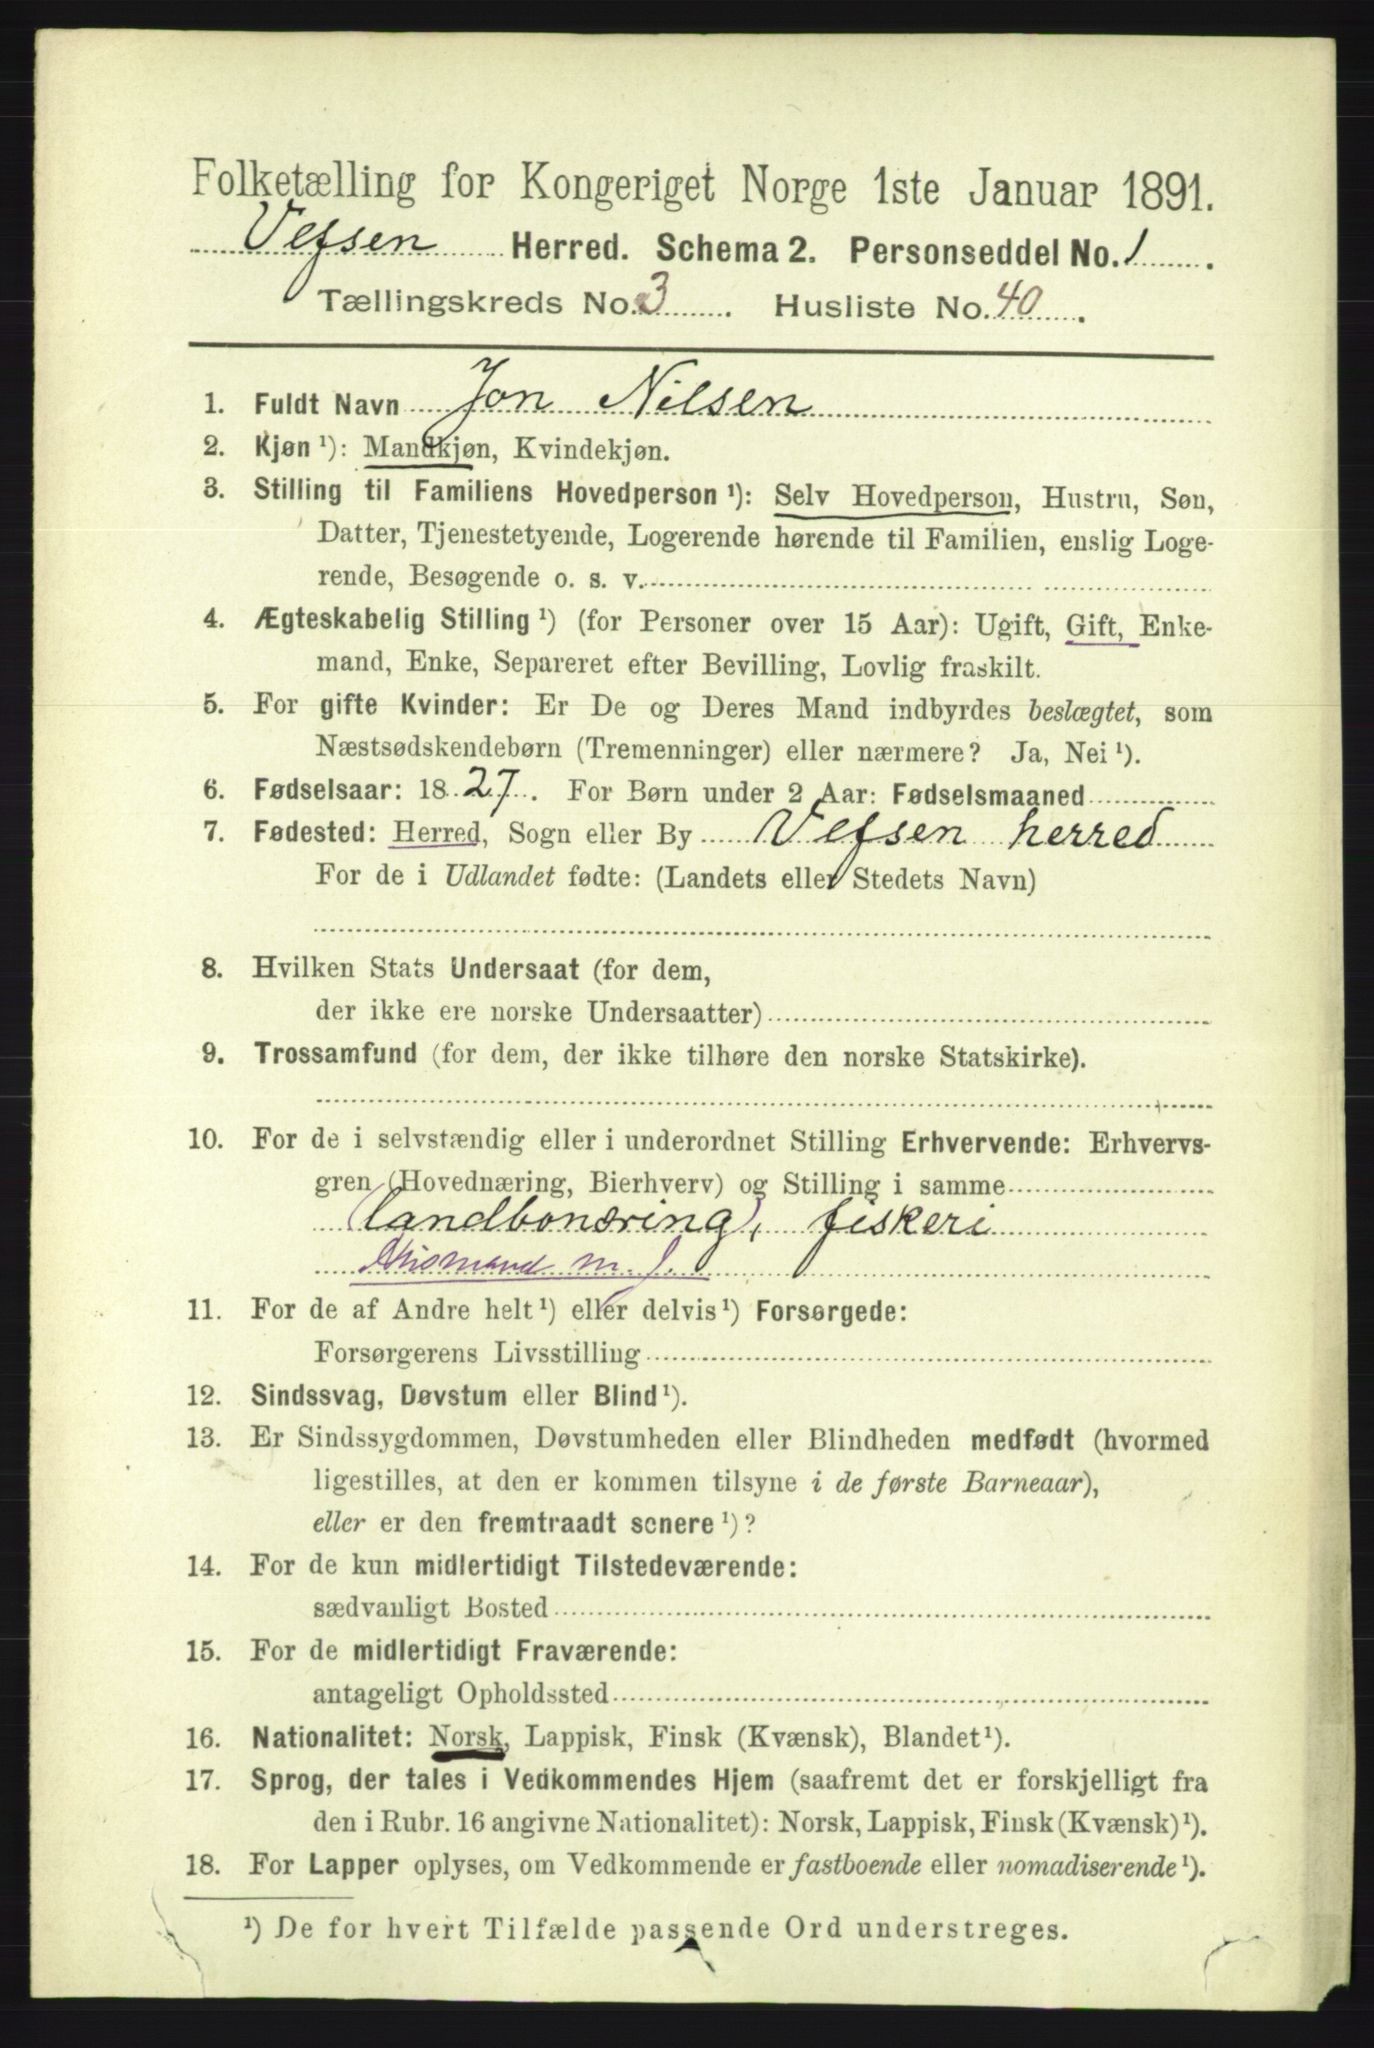 Folketælling for Kongeriget Norge 1ste Januar 1891.
Vefsen Herred. Schema 2. Personseddel No. 1.
Tællingskreds No. 3. Husliste No. 40.
1. Fuldt Navn Jon Nilsen
2. Kjøn ¹): Mandkjøn, Kvindekjøn.
3. Stilling til Familiens Hovedperson ¹): Selv Hovedperson, Hustru, Søn,
Datter, Tjenestetyende, Logerende hørende til Familien, enslig Loge-
rende, Besøgende o. s. v.
4. Ægteskabelig Stilling ¹) (for Personer over 15 Aar): Ugift, Gift, Enke-
mand, Enke, Separeret efter Bevilling, Lovlig fraskilt.
5. For gifte Kvinder: Er De og Deres Mand indbyrdes beslægtet, som
Næstsødskendebørn (Tremenninger) eller nærmere? Ja, Nei ¹).
6. Fødselsaar: 1827. For Børn under 2 Aar: Fødselsmaaned
7. Fødested: Herred, Sogn eller By Vefsen herred
For de i Udlandet fødte: (Landets eller Stedets Navn)
8. Hvilken Stats Undersaat (for dem,
der ikke ere norske Undersaatter)
9. Trossamfund (for dem, der ikke tilhøre den norske Statskirke).
10. For de i selvstændig eller i underordnet Stilling Erhvervende: Erhvervs-
gren (Hovednæring, Bierhverv) og Stilling i samme
(landbonæring), fiskeri
Husmand m. J.
11. For de af Andre helt ¹) eller delvis ¹) Forsørgede:
Forsørgerens Livsstilling
12. Sindssvag, Døvstum eller Blind ¹).
13. Er Sindssygdommen, Døvstumheden eller Blindheden medfødt (hvormed
ligestilles, at den er kommen tilsyne i de første Barneaar),
eller er den fremtraadt senere ¹)?
14. For de kun midlertidigt Tilstedeværende:
sædvanligt Bosted
15. For de midlertidigt Fraværende:
antageligt Opholdssted
16. Nationalitet: Norsk, Lappisk, Finsk (Kvænsk), Blandet ¹).
17. Sprog, der tales i Vedkommendes Hjem (saafremt det er forskjelligt fra
den i Rubr. 16 angivne Nationalitet): Norsk, Lappisk, Finsk (Kvænsk) ¹).
18. For Lapper oplyses, om Vedkommende er fastboende eller nomadiserende ¹).
¹) De for hvert Tilfælde passende Ord understreges.